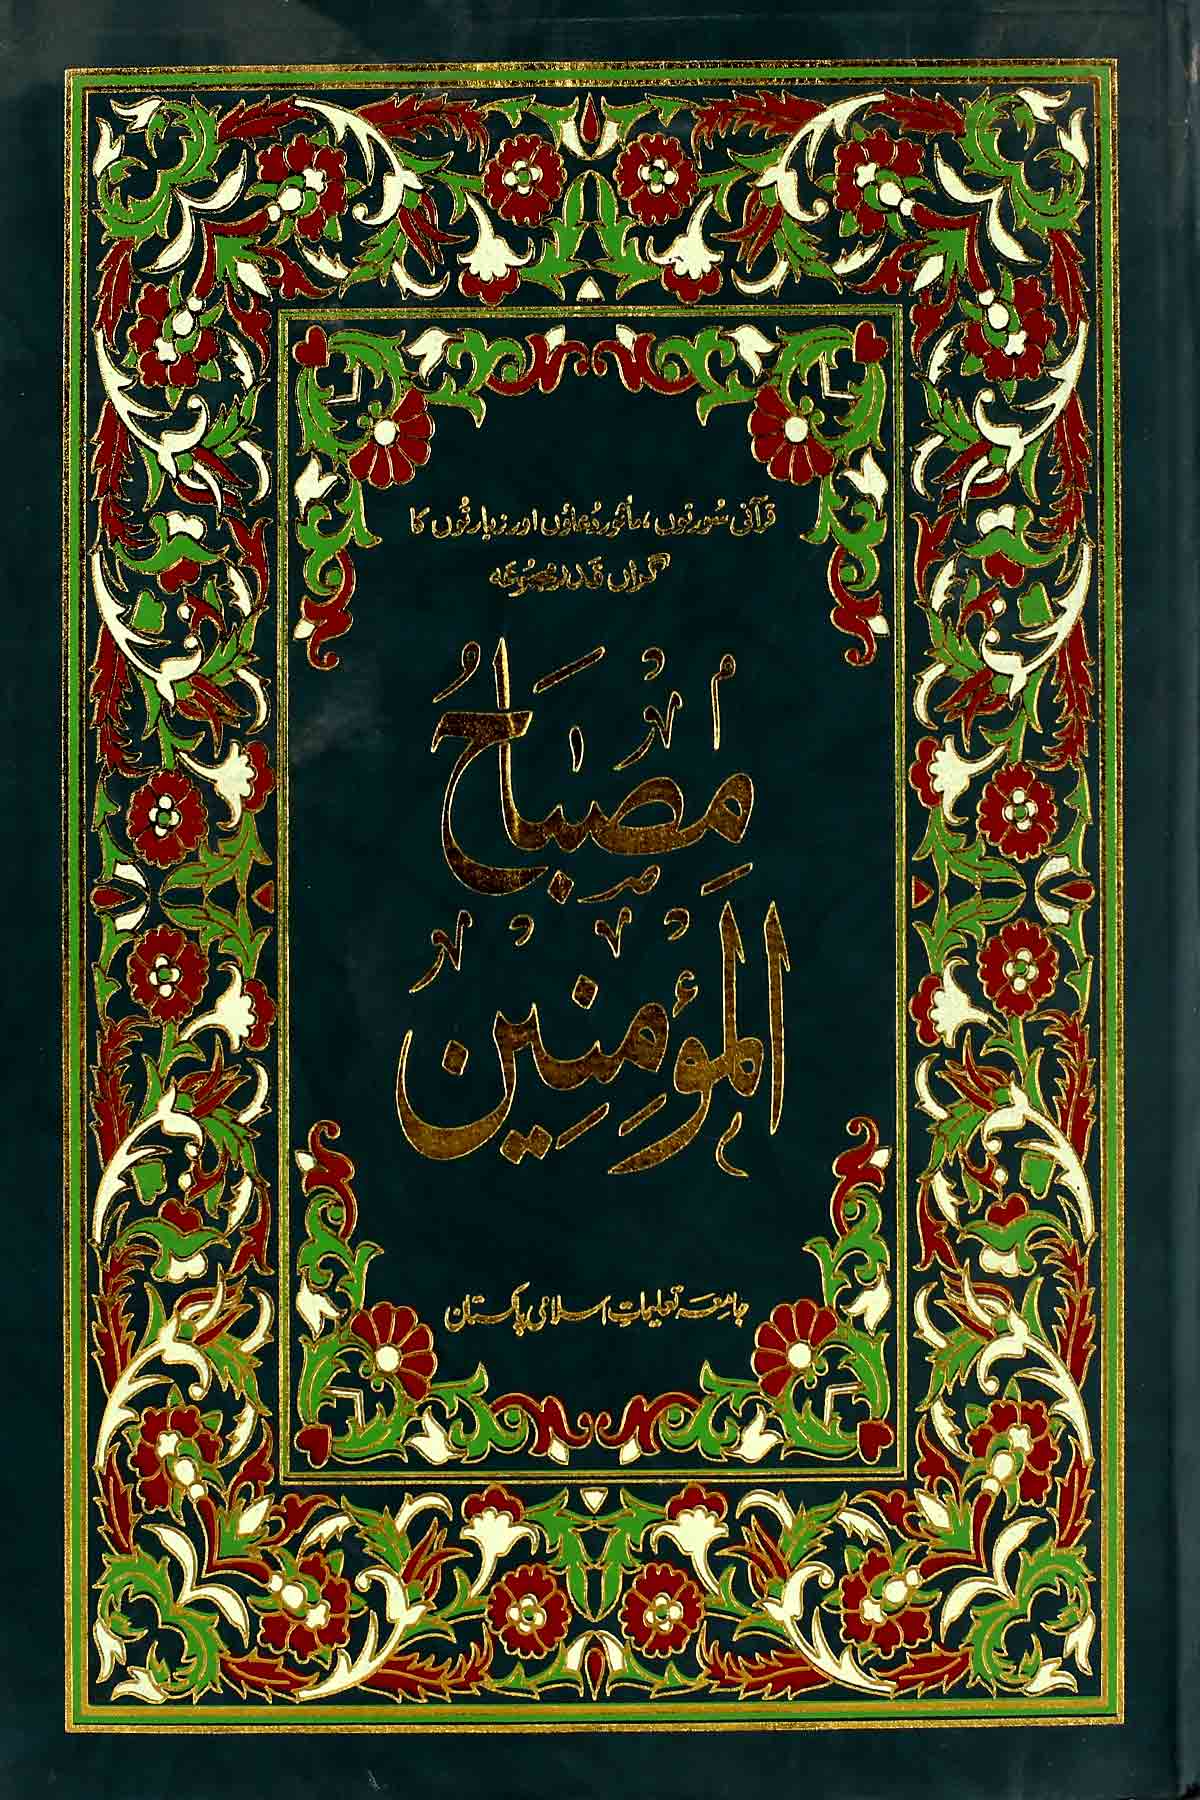 قرآنی سُورتوں، مأثور دُعاؤں اور زیارتوں کا
گراں قدر مجموعہ
مِصْبَاحُ
الْمُؤْمِنِیْنَ
جامعہ تعلیماتِ اسلامی پاکستان